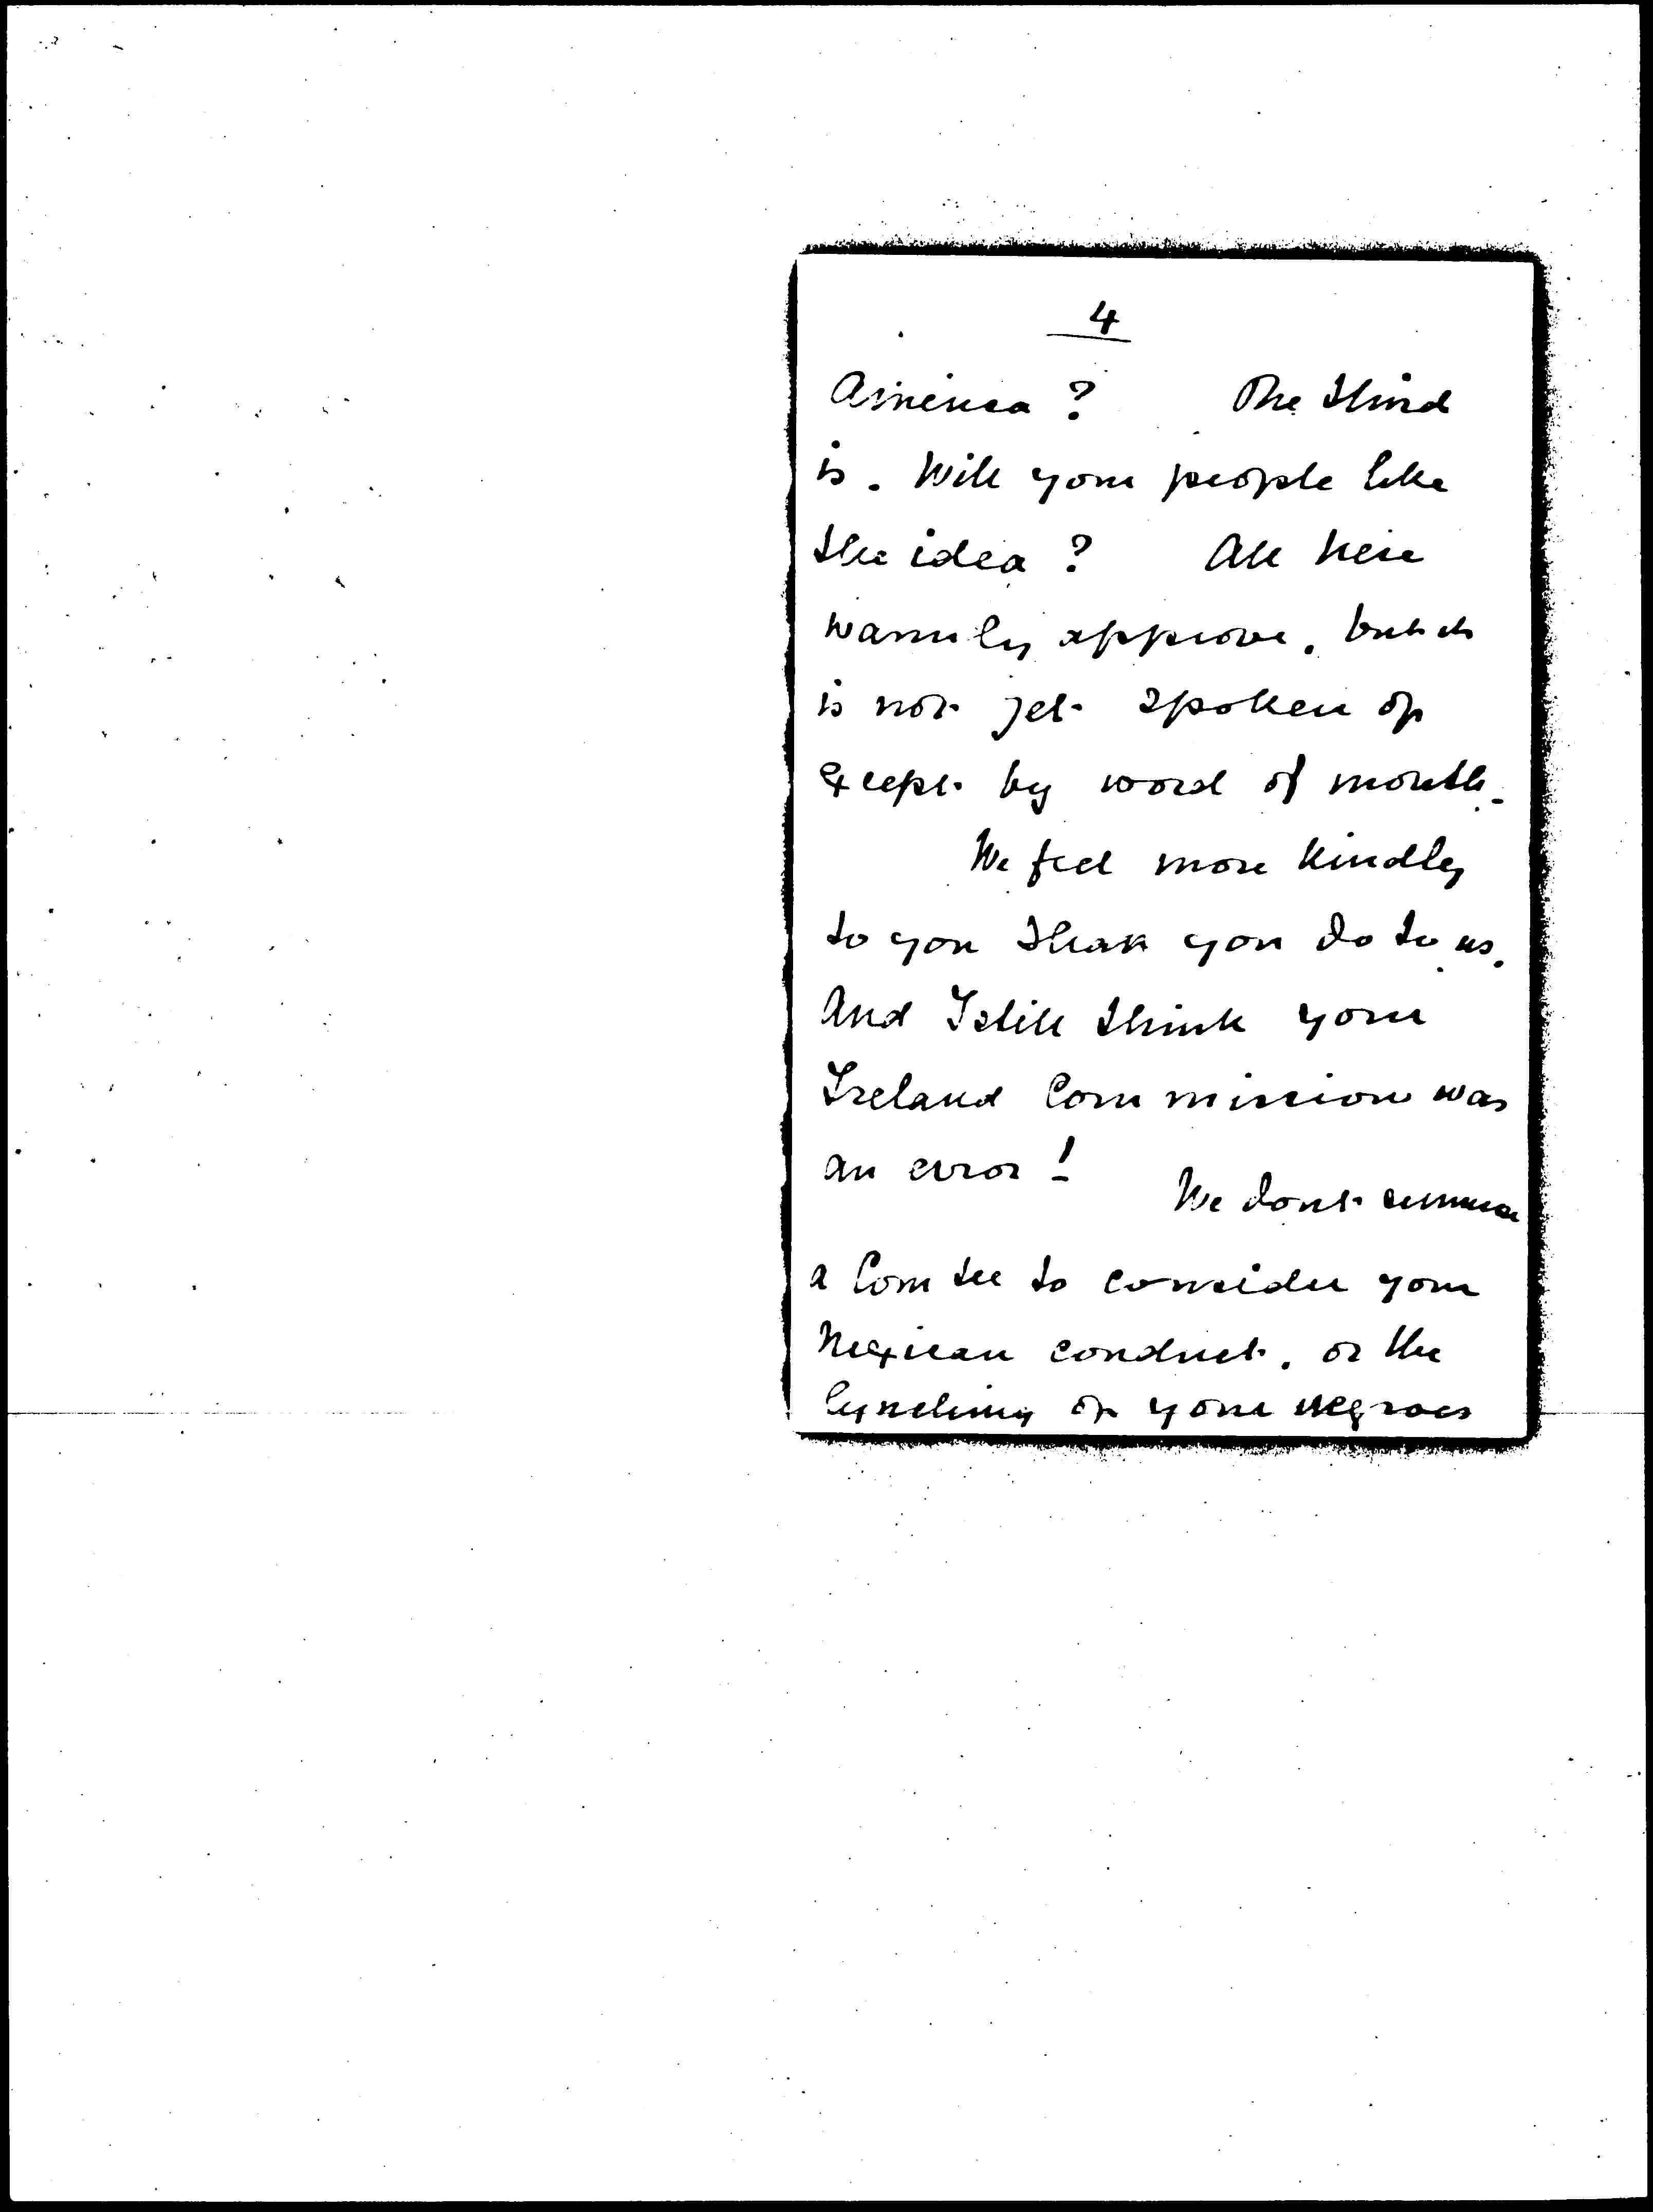 4
America? The third
is. Will your people like
the idea? All here
warmly approve. but it
is not yet spoken of
except by word of mouth.
We feel more kindly
to you than you do to us.
And I still think your
Ireland Commission was
an error! We dont
a Comtee to consider your
Mexican conduct. or the
lynching of your negroes